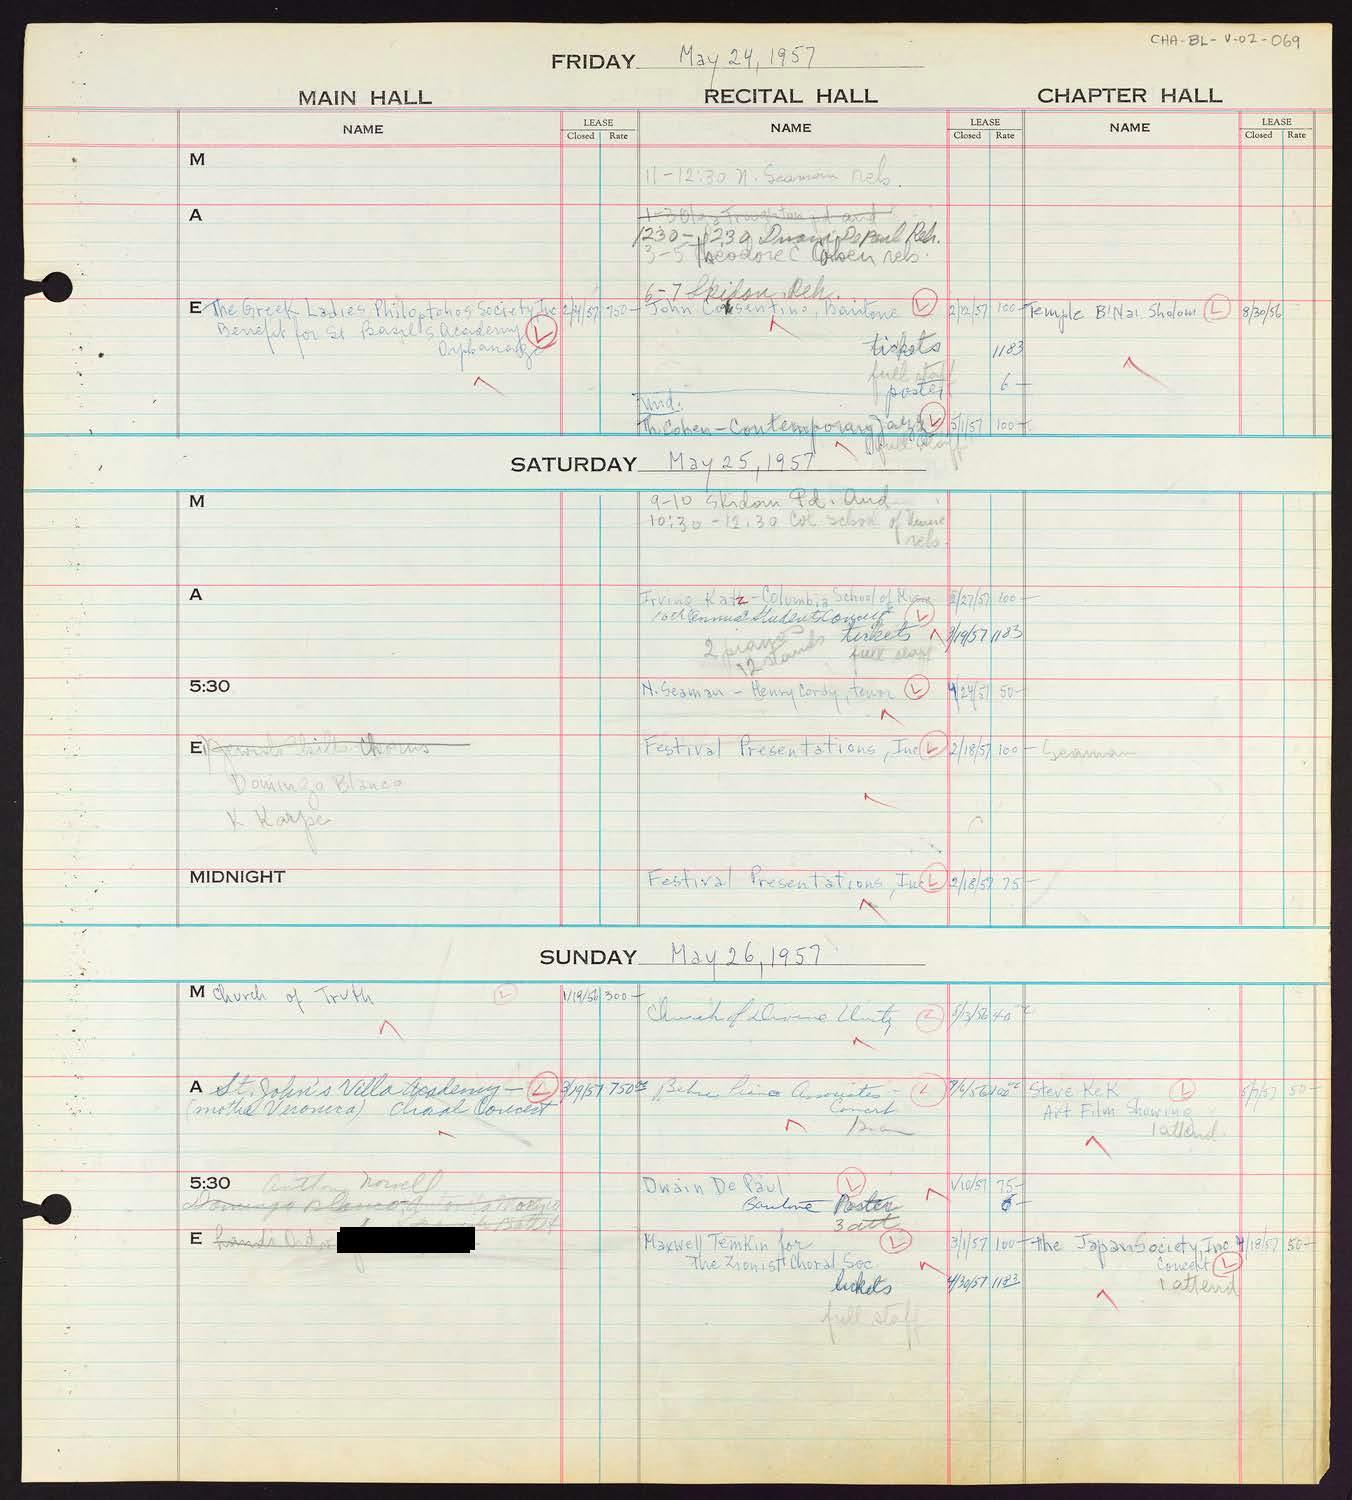 CHA-BL-V-02-069
FRIDAY May 24, 1957
MAIN HALL
RECITAL HALL
CHAPTER HALL
NAME
LEASE
Closed Rate
NAME
LEASE
Closed Rate
NAME
LEASE
Closed Rate
M
11-12:30 N. Seaman reh.
A
3-5 Theodore C reh.
6-7 Skidon Reh.
E The Greek Ladies Philoptohos Society Inc 2/4/57 750-
Benefit for St Basil's Academy L
Orphanage
John Cosentino, Baritone L 2/12/57 100-
tickets 1183
full staff
poster 6-
Mid:
Th. Cohen-Contemporary Jazz L 5/1/57 100-
full staff
Temple B'Nai Sholom L 8/30/56
SATURDAY May 25, 1957
M
9-10 Skidon Pd. Aud
10:30-12:30 Col School of
reh.
A
Irving Katz-Columbia School of Music 2/27/57 100-
10th Annual Student Concert L
tickets 3/19/57 1183
2 pianos
12 stands full staff
5:30
N. Seaman - Henry Cordy, tenor L 4/24/57 50-
E
Domingo Blanco
K Karpe
Festival Presentations, Inc L 2/18/57 100-
Seaman
MIDNIGHT
Festival Presentations, Inc L 2/18/57 75-
SUNDAY May 26, 1957
M Church of Truth L 1/19/56 300-
Church of Divine Unity L 5/3/56 40
A St. John's Villa Academy- L 3/19/57 750
(mother Veronica) Choral Concert
Associates- L
Concert
Steve Kek L 5/7/57 50-
Art Film Showing
1 attend
5:30
Anthony Norvell
Domingo Blanco
Dwain De Paul L 1/10/57 75-
Baritone Poster 6-
3 att
E
Maxwell Temkin for L 3/1/57 100-
The Zionist Choral Soc.
tickets 4/30/57 1183
full staff
The Japan Society, Inc 4/18/57 50-
Concert L
1 attend